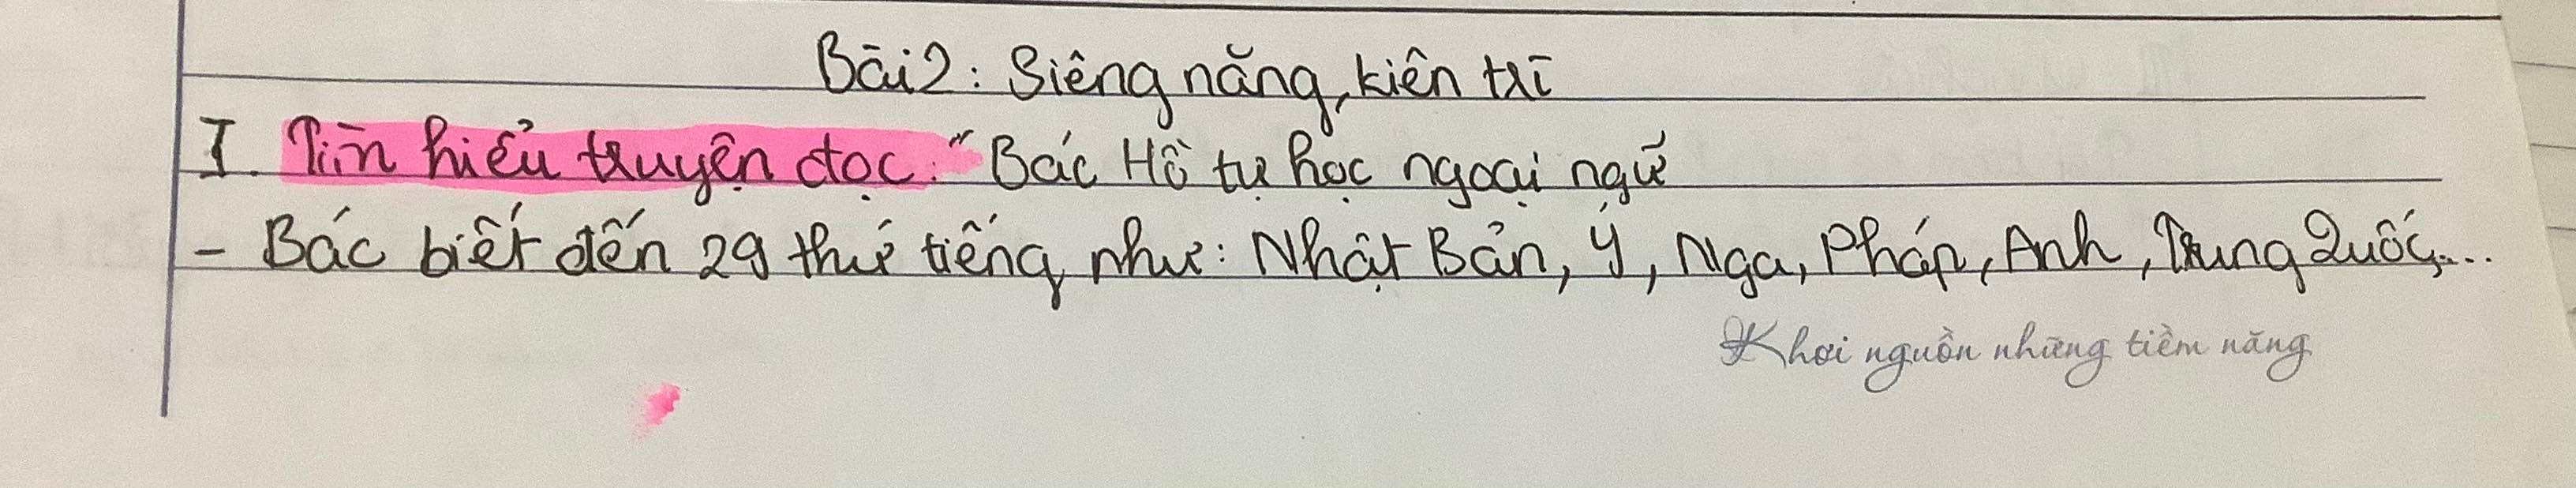 Bài 2: Siêng năng, kiên trì
I. Tìm hiểu truyện đọc: "Bác Hồ tự học ngoại ngữ
- Bác biết đến 29 thứ tiếng như: Nhật Bản, Ý, Nga, Pháp, Anh, Trung Quốc,...
Khơi nguồn những tiềm năng